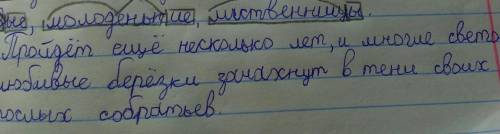 ые, молоденькие, лиственницы.
Пройдёт ещё несколько лет, и многие свето
любивые берёзки зачахнут в тени своих
ослых собратьев.